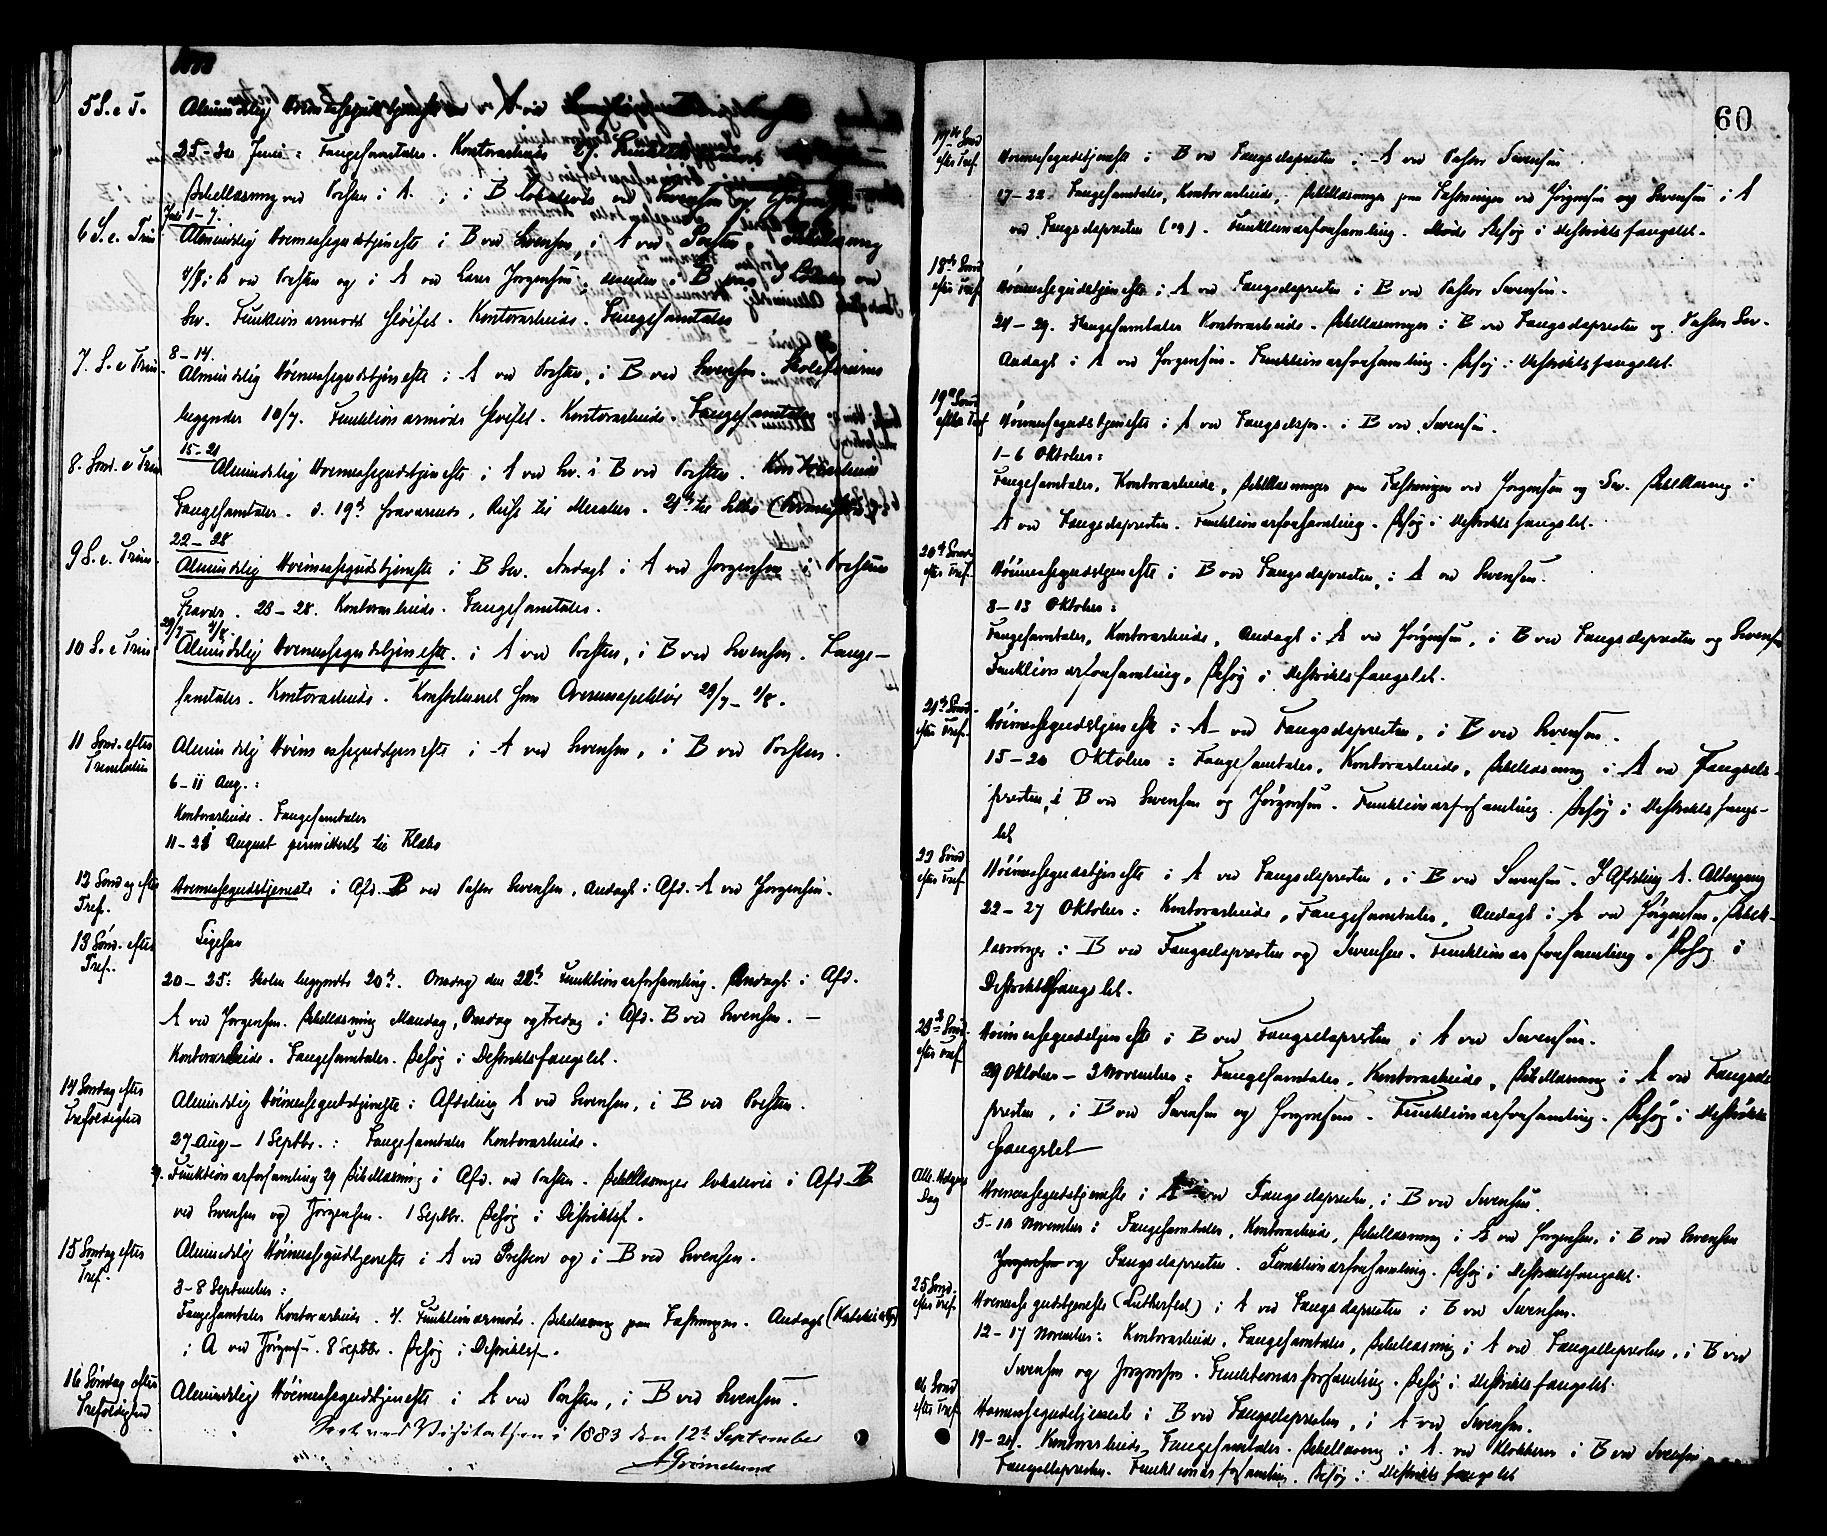 1883
5 S. e T. Almindelig Høimessegudstjeneste
25-30 Juni: Fangesamtaler. Kontorarbeide
Bibellæsning ved Presten i A. ; i B lokalevis ved Svensen og Jørgensen
Juli 1-7.
6 S. e. Trin Almindelig Høimessegudstjeneste i B ved Svensen, i A ved Presten. Bibellæsning
i B ved Presten og i A ved Lærer Jørgensen; desuden i B
Sv. Funktionærmøde sløifet. Kontorarbeide. Fangesamtaler
8-14.
7. S. e Trin. Almindelig Høimessegudstjeneste i A ved Presten, i B ved Svensen. Skoleferierne
begynder 10/7. Funktionærmøde sløifet. Kontorarbeide. Fangesamtaler
15-21
8. Sønd. e Trin Almindelig Høimessegudstjeneste i A ved Sv. i B ved Presten. Kontorarbeide
Fangesamtaler. d. 19de fraværende, Reise til Meraker. 21de til Selbo
22-28
9 S. e. Trin. Almindelig Høimessegudstjeneste i B Sv. Andagt i A ved Jørgensen i Prestens
Fravær. 23-28. Kontorarbeide. Fangesamtaler.
29/7 - 4/8.
10 S. e Trin. Almindelig Høimessegudstjeneste. i A ved Presten, i B ved Svensen. Fange-
samtaler. Kontorarbeide. Konstitueret som Overinspektør 29/7 - 1/8.
11 Sønd. efter Trinitatis Almindelig Høimessegudstjeneste i A ved Svensen, i B ved Presten.
6-11 Aug.:
Kontorarbeide. Fangesamtaler
11-21 August permitteret til Klæbo
12 Søndag efter Tref. Høimessegudstjeneste i Afd. B ved Pastor Svensen, Andagt i Afd. A ved Jørgensen.
13 Sønd. efter Tref. Ligesaa
20-25: Skolen begyndte 20de. Onsdag den 22de Funktionærforsamling. Andagt i Afd.
A ved Jørgensen. Bibellæsning Mandag, Onsdag og Fredag i Afd. B ved Svensen. —
Kontorarbeide. Fangesamtaler. Besøg i Distriktsfængslet.
14 Søndag efter Trefoldighed Almindelig Høimessegudstjeneste i Afdeling A ved Svensen, i B ved Presten.
27 Aug - 1 Septbr.: Fangesamtaler Kontorarbeide.
Funktionærforsamling 29 Bibellæsning i Afd. ved Presten. Bibellæsninger lokalevis i Afd. B
ved Svensen og Jørgensen. 1 Septbr. Besøg i Distriktsf.
15 Søndag efter Tref. Almindelig Høimessegudstjeneste i A ved Presten og i B ved Svensen.
3-8 September:
Fangesamtaler Kontorarbeide. Funktionærmøde. Bibellæsning paa Fæstningen. Andagt
i A ved Jørgens. 8 Septbr. Besøg i Distriktsf.
16 Søndag efter Trefoldighed Almindelig Høimessegudstjeneste i A ved Presten, i B ved Svensen.
Seet ved Visitatsen i 1883 den 12te September
AGrimelund

60
17de Sønd efter Tref. Høimessegudstjeneste i B ved Fængselspresten, i A ved Pastor Svensen
17-22. Fangesamtaler, Kontorarbeide, Bibellæsninger paa Fæstningen ved Jørgensen og Svensen i A
ved Fængselspresten (19). Funktionærforsamling. Besøg i Distriktsfængslet.
18de Sønd efter Tref. Høimessegudstjeneste i A ved Fængselspresten i B ved Pastor Svensen.
24-29. Fangesamtaler Kontorarbeide. Bibellæsninger i B ved Fængselspresten og Pastor Sv.
Andagt i A ved Jørgensen. Funktionærforsamling. Besøg i Distriktsfængslet.
19de Sønd efter Tref Høimessegudstjeneste i A ved Fængselspr. i B ved Svensen.
1-6 Oktober:
Fangesamtaler, Kontorarbeide, Bibellæsninger paa Fæstningen ved Jørgensen og Sv. Bibellæsning i
A ved Fængselspresten. Funktionærforsamling. Besøg i Distriktsfængslet.
20de Sønd. efter Tref. Høimessegudstjeneste i B ved Fængselspresten, i A ved Svensen.
8-13 Oktober:
Fangesamtaler, Kontorarbeide, Andagt i A ved Jørgensen, i B ved Fængselspresten og Svensen
Funktionærforsamling, Besøg i Distriktsfængslet.
21de Sønd. efter Tref. Høimessegudstjeneste i A ved Fængselspresten, i B ved Svensen.
15-20 Oktober: Fangesamtaler, Kontorarbeide, Bibellæsning i A ved Fængsels-
presten, i B ved Svensen og Jørgensen. Funktionærforsamling. Besøg i Distriktsfængs-
let
22 Sønd efter Tref. Høimessegudstjeneste i A ved Fængselspresten, i B ved Svensen. I Afdeling A. Altergang
22-27 Oktober: Kontorarbeide, Fangesamtaler, Andagt i A ved Jørgensen, Bibel-
læsninger i B ved Fængselspresten og Svensen. Funktionærforsamling. Besøg i
Distriktsfængslet.
23de Sønd. efter Tref Høimessegudstjeneste i B ved Fængselspresten i A ved Svensen.
29 Oktober - 3 November: Fangesamtaler, Kontorarbeide, Bibellæsning i A ved Fængsels
presten, i B ved Svensen og Jørgensen. Funktionærforsamling. Besøg i Distrikts
fængslet
Alle Helgens Dag Høimessegudstjeneste i A ved Fængselspresten, i B ved Svensen.
5-10 November: Fangesamtaler, Kontorarbeide, Bibellæsning i A ved Jørgensen, i B ved Svensen
Jørgensen og Fængselspresten. Funktionærforsamling. Besøg i Distriktsfængslet.
25 Sønd. efter Tref. Høimessegudstjeneste (Lutherfest) i A ved Fængselspresten i B ved Svensen.
12-17 November: Kontorarbeide, Fangesamtaler, Bibellæsning i A ved Fængselspresten, i B ved
Svensen og Jørgensen. Funktionærforsamling. Besøg i Distriktsfængslet.
Sønd efter Tref. Høimessegudstjeneste i B ved Fængselspresten, i A ved Svensen.
19-24. Kontorarbeide, Fangesamtaler. Bibellæsning i A. ved Klokkeren i B ved Svensen
Fængselspresten. Funktionærforsamling. Besøg i Distriktsfængslet